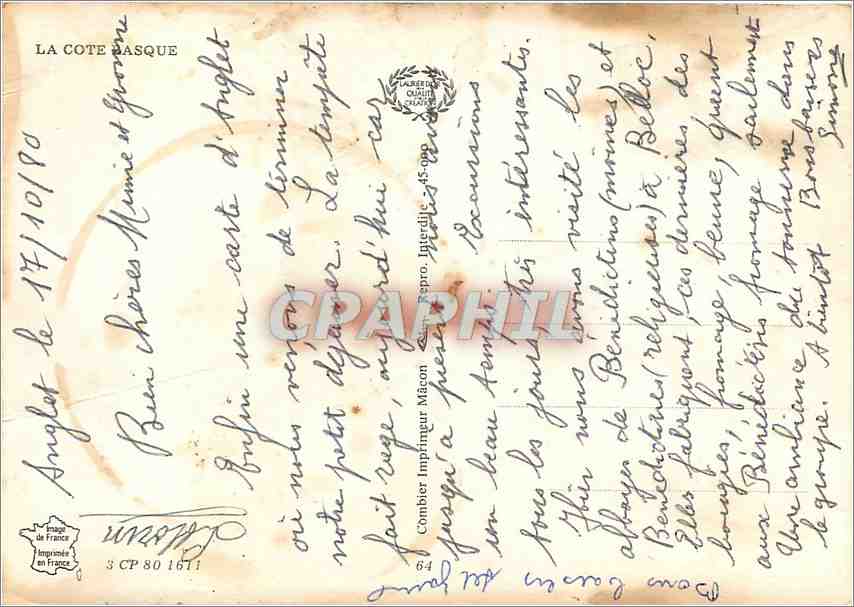 LA COTE BASQUE
Anglet le 17/10/80
Bien chères Mimie et Yvonne
Enfin une carte d'Anglet
où nous venons de terminer
notre petit déjeuner. La tempête
fait rage, aujourd'hui car
jusqu'à présent nous
un beau temps. Excursions
tous les jours, très intéressantes.
Hier nous avons visité les
abbayes de Bénédictins (moines) et
Bénédictines (religieuses) à Belloc.
Elles fabriquent, ces dernières des
bougies, fromage, beurre,
aux Bénédictins fromage seulement
Une ambiance du tonnerre dans
le groupe. A bientôt Bons baisers
Simone
Bons baisers
LAURIER D'OR
QUALITÉ
CREATION
Combier Imprimeur Mâcon Repro. Interdite - 45-000
64
Image
de France
Imprimée
en France
3 CP 80 1611
CPAPHIL